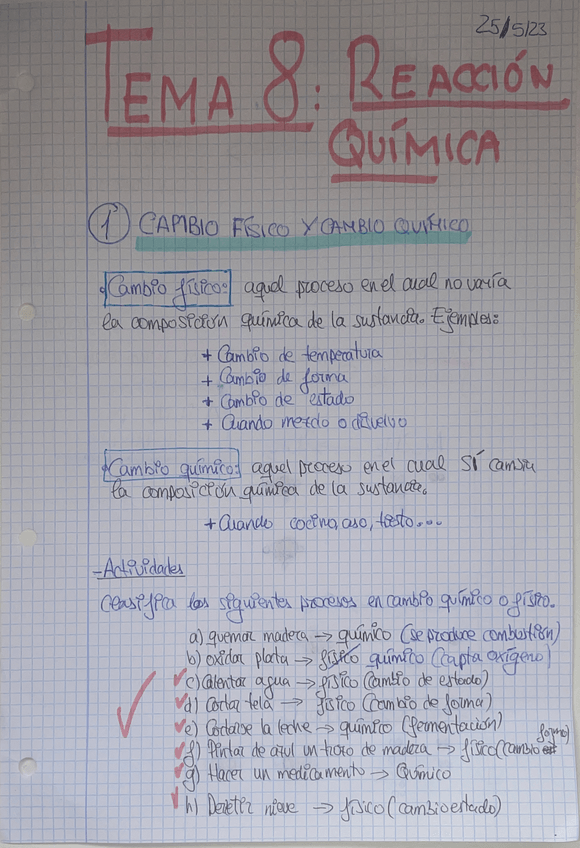 25/5/23
TEMA 8: REACCIÓN
QUÍMICA
1 CAMBIO FÍSICO Y CAMBIO QUÍMICO
Cambio físico: aquel proceso en el cual no varía
la composición química de la sustancia. Ejemplos:
+ Cambio de temperatura
+ Cambio de forma
+ Cambio de estado
+ Cuando mezclo o disuelvo
Cambio químico: aquel proceso en el cual SÍ cambia
la composición química de la sustancia.
+ Cuando cocino, aso, tuesto...
- Actividades
Clasifica los siguientes procesos en cambio químico o físico.
a) quemar madera → químico (se produce combustión)
b) oxidar plata → físico químico (capta oxígeno)
c) Calentar agua → físico (cambio de estado)
d) Cortar tela → físico (cambio de forma)
e) Cortarse la leche → químico (fermentación)
f) Pintar de azul un trozo de madera → físico (cambio est forma)
g) Hacer un medicamento → Químico
h) Derretir nieve → físico (cambio estado)